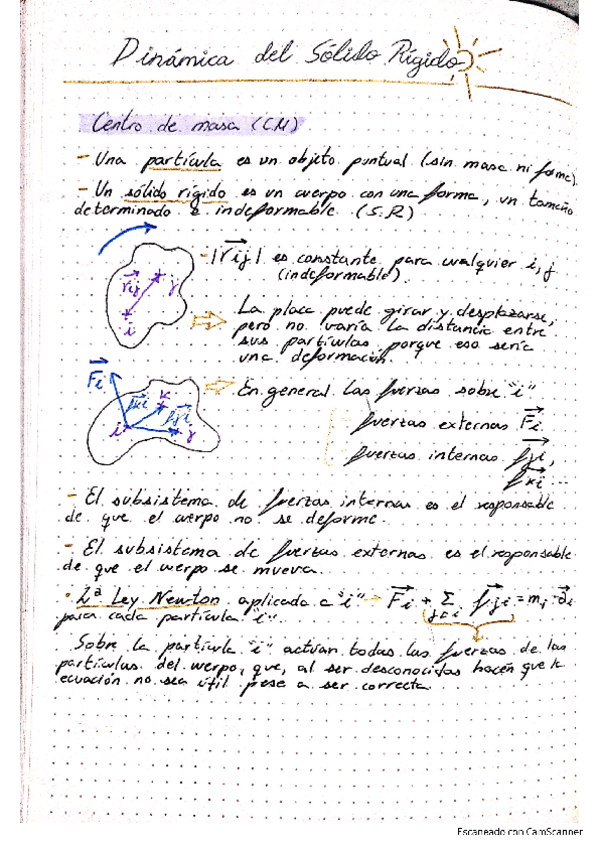 Dinámica del Sólido Rígido
Centro de masa (CM)
- Una partícula es un objeto puntual (sin masa ni forma).
- Un sólido rígido es un cuerpo con una forma, un tamaño
determinado e indeformable. (S.R)
- |rij| es constante para cualquier i, j
(indeformable)
rij
j
i
La placa puede girar y desplazarse,
pero no varía la distancia entre
sus partículas porque eso sería
una deformación.
Fi
k
fki
fji
i
j
En general las fuerzas sobre "i"
fuerzas externas Fi
fuerzas internas fji,
fki ...
- El subsistema de fuerzas internas es el responsable
de que el cuerpo no se deforme.
- El subsistema de fuerzas externas es el responsable
de que el cuerpo se mueva.
· 2ª Ley Newton aplicada a "i" → Fi + Σ j≠i fji = mi · ai
para cada partícula "i".
Sobre la partícula "i" actúan todas las fuerzas de las
partículas del cuerpo, que, al ser desconocidas hacen que la
ecuación no sea útil pese a ser correcta.
Escaneado con CamScanner